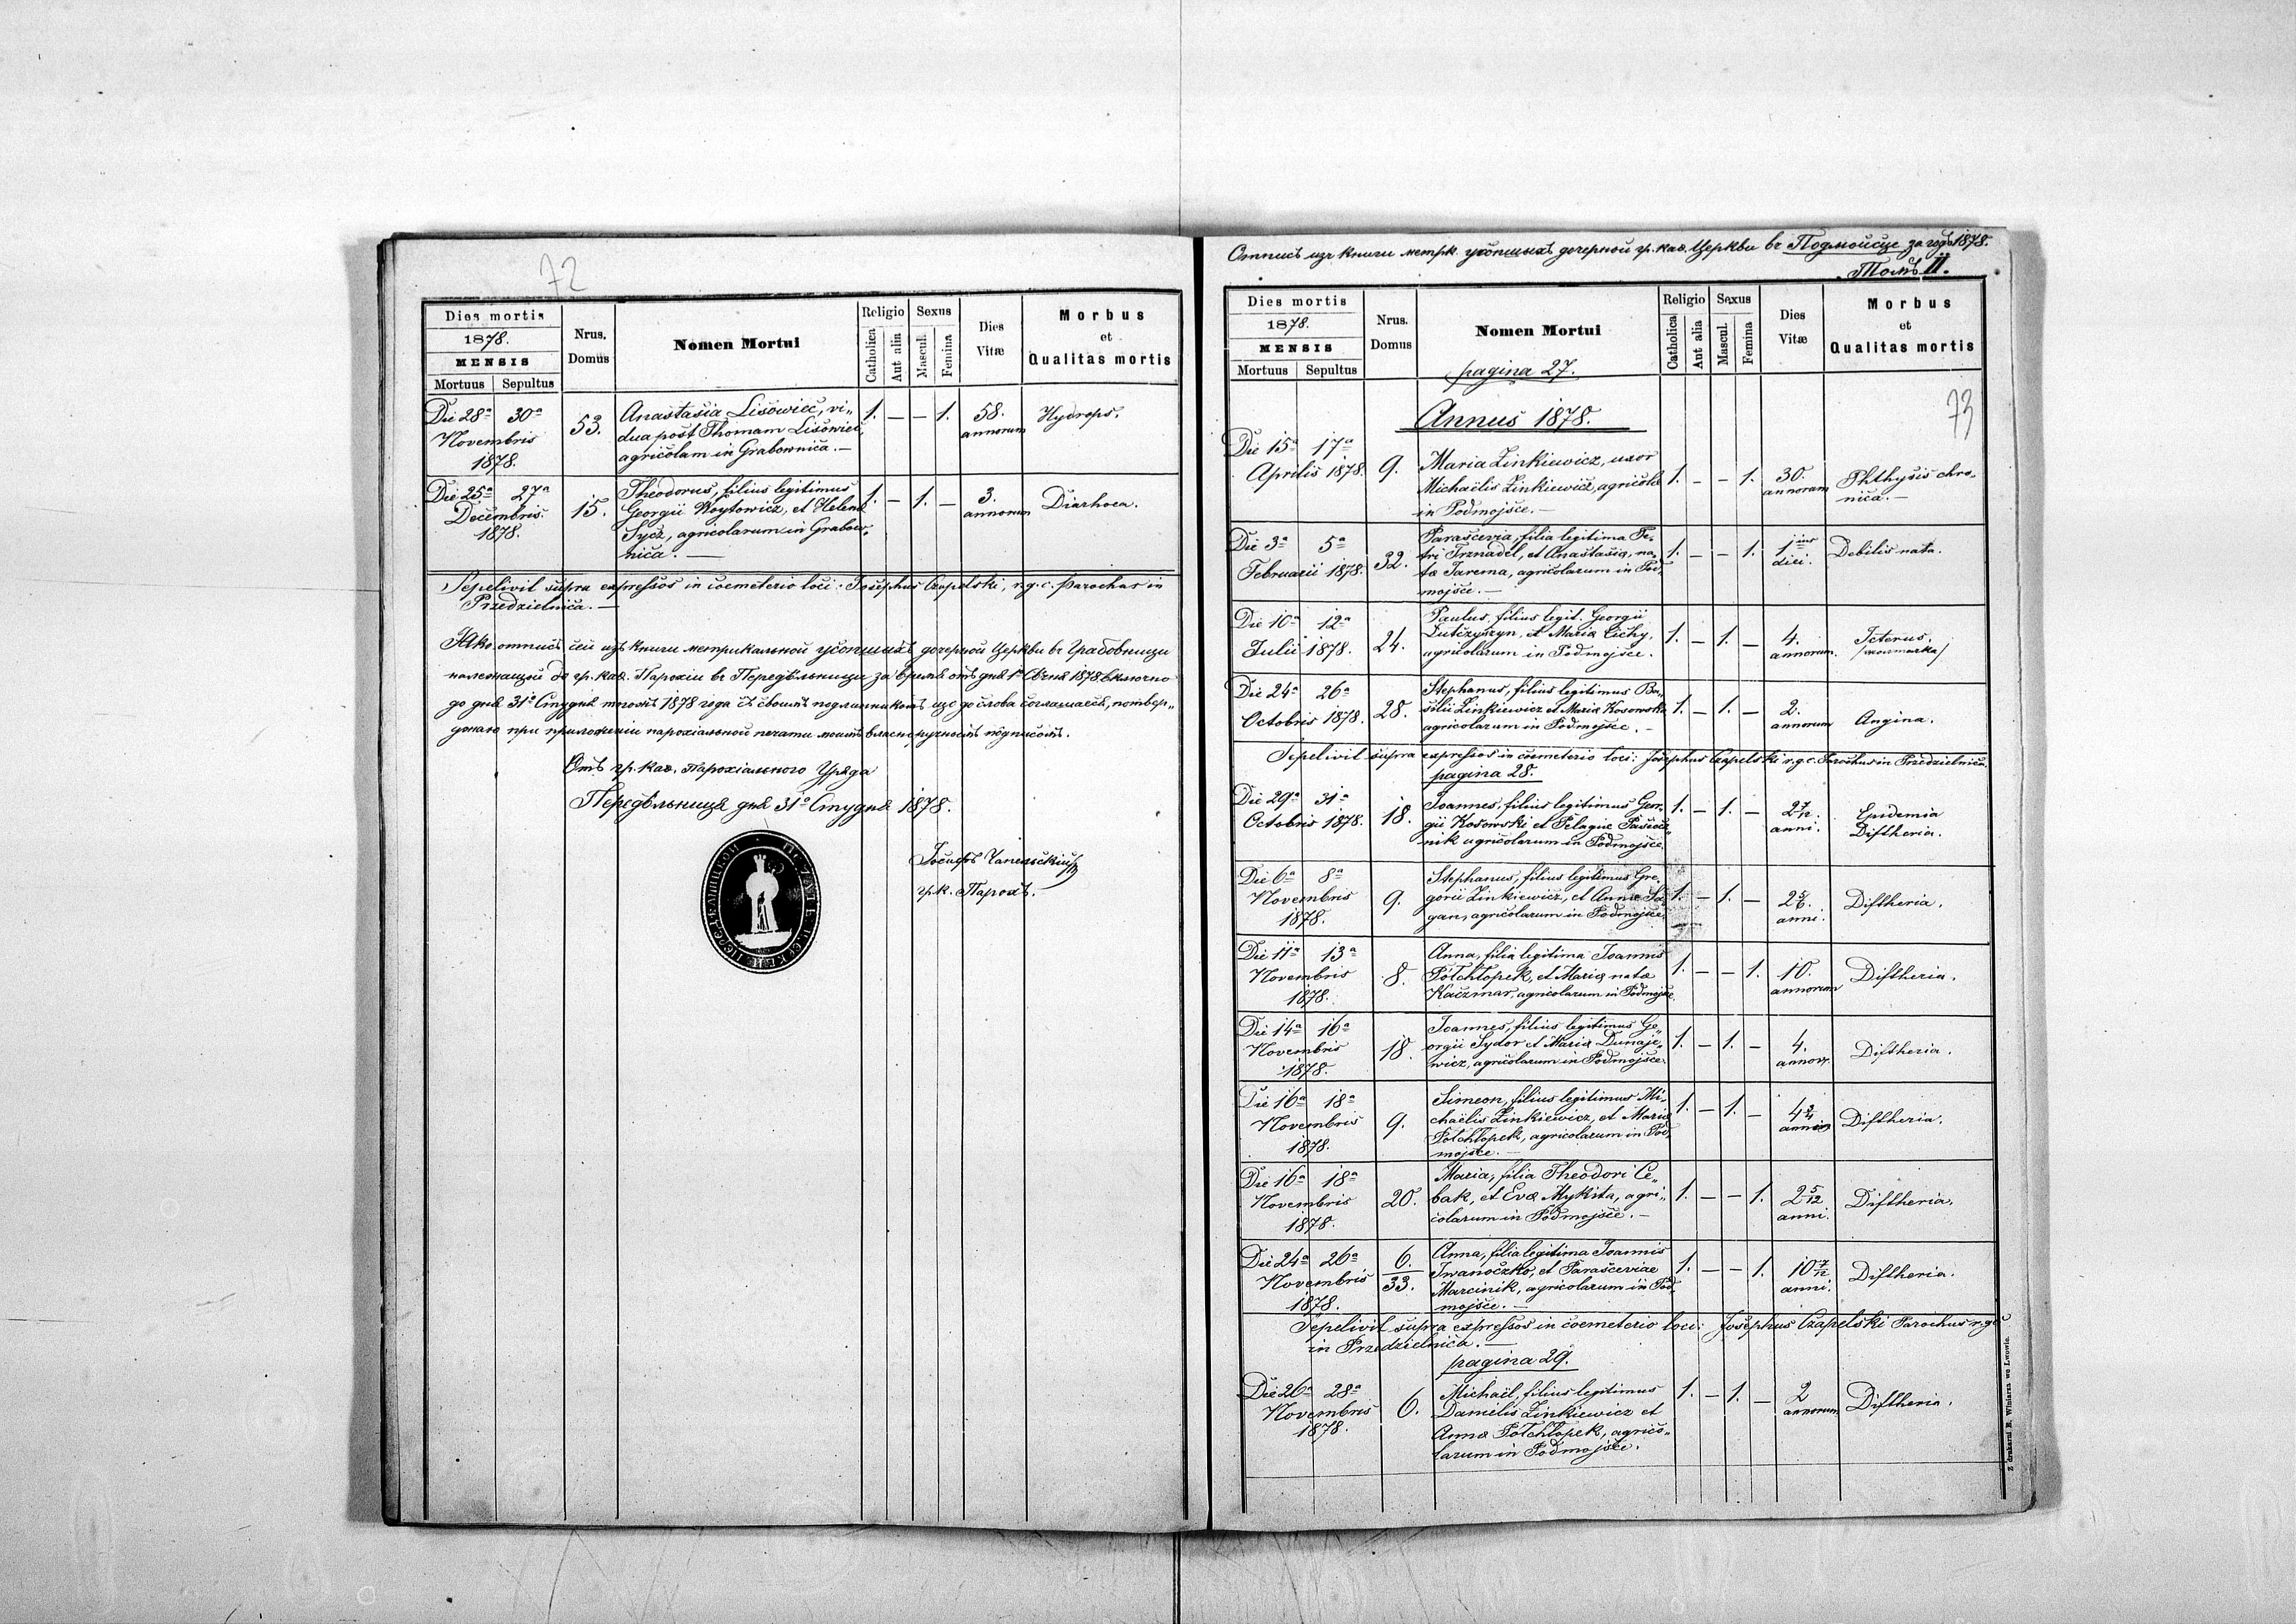 72
Dies mortis
1878.
MENSIS
Mortuus Sepultus
Nrus. Domus
Nomen Mortui
Religio
Catholica
Aut alia
Sexus
Mascul.
Femina
Dies Vitæ
Morbus et Qualitas mortis
Die 28ª 30ª
Novembris
1878.
53.
Anastasia Lisowiec, vi„
dua post Thomam Lisowiec,
agricolam in Grabownica.—
1. — — 1.
58.
annorum
Hydrops.
Die 25ª 27ª
Decembris.
1878.
15.
Theodorus, filius legitimus
Georgii Woytowicz, et Helena
Sycz, agricolarum in Grabow„
nica. —
1. — 1. —
3.
annorum
Diarhoea.
Sepelivit supra expressos in coemeterio loci: Josephus Czapelski, r.g.c. Parochus in
Przedzielnica.—
Яко отписъ сей изъ книги метрикальной усопшихъ дочерной Церкви въ Грабовници
належащой до гр. каѳ. Парохіи въ Передѣльници за время отъ дня 1º Сѣчня 1878 включно
до дня 31º Студня тогожъ 1878 года съ своимъ подлинникомъ що до слова соглашаеся, потвер„
ждаю при приложеніи парохіяльной печати моимъ власноручнымъ подписомъ.
Отъ гр. каѳ. Парохіяльного Уряда
Передѣльниця дня 31º Студня 1878.
Іосифъ Чапельскій
гр.к. Парохъ.
Отписъ изъ книги метрк. усопшихъ дочерной гр. каѳ. Церкви въ Подмойсце за годъ 1878.
Томъ II.
Dies mortis
1878.
MENSIS
Mortuus Sepultus
Nrus. Domus
Nomen Mortui
Religio
Catholica
Aut alia
Sexus
Mascul.
Femina
Dies Vitæ
Morbus et Qualitas mortis
pagina 27.
73
Annus 1878.
Die 15ª 17ª
Aprilis 1878.
9.
Maria Zinkiewicz, uxor
Michaëlis Zinkiewicz, agricola
in Podmojsce.—
1. — — 1.
30.
annorum
Phthysis chro„
nica.—
Die 3ª 5ª
Februarii 1878.
32.
Parascevia, filia legitima Pe„
tri Trznadel, et Anastasia, na„
ta Jarema, agricolarum in Pod„
mojsce.—
1. — — 1.
1ius
diei.
Debilis nata.
Die 10ª 12ª
Julii 1878.
24.
Paulus, filius legit. Georgii
Lutczyszyn, et Maria Cichy,
agricolarum in Podmojsce.
1. — 1. —
4.
annorum.
Icterus.
/жолтачка/
Die 24ª 26ª
Octobris 1878.
28.
Stephanus, filius legitimus Ba„
silii Zinkiewicz et Maria Kosowska
agricolarum in Podmojsce.—
1. — 1. —
2.
annorum
Angina.
Sepelivit supra expressos in coemeterio loci: Josephus Czapelski r.g.c. Parochus in Przedzielnica.
pagina 28.
Die 29ª 31ª
Octobris 1878.
18.
Joannes, filius legitimus Geor„
gii Kosowski et Pelagiæ Pasiecz„
nik agricolarum in Podmojsce.
1. — 1. —
2 7/12.
anni.
Epidemia
Diftheria.
Die 6ª 8ª
Novembris
1878.
9.
Stephanus, filius legitimus Gre„
gorii Zinkiewicz, et Anna Sa„
gan, agricolarum in Podmojsce.
1. — 1. —
2 5/6.
anni.
Diftheria.
Die 11ª 13ª
Novembris
1878.
8.
Anna, filia legitima Joannis
Potchłopek, et Maria nata
Kaczmar, agricolarum in Podmojsce.
1. — — 1.
10.
annorum
Diftheria.
Die 14ª 16ª
Novembris
1878.
18.
Joannes, filius legitimus Ge„
orgii Sydor et Maria Dunaje„
wicz, agricolarum in Podmojsce.
1. — 1. —
4.
annor.
Diftheria.
Die 16ª 18ª
Novembris
1878.
9.
Simeon, filius legitimus Mi„
chaëlis Zinkiewicz, et Maria
Potchłopek, agricolarum in Pod„
mojsce.—
1. — 1. —
Diftheria.
Die 16ª 18ª
Novembris
1878.
20.
Maria, filia Theodori Ce„
bak, et Eva Mykita, agri„
colarum in Podmojsce.—
1. — — 1.
2 5/12
anni.
Diftheria.
Die 24ª 26ª
Novembris
1878.
6./33.
Anna, filia legitima Joannis
Iwanoczko, et Parasceviae
Marcinik, agricolarum in Pod„
mojsce.—
1. — — 1.
10 7/12
anni.
Diftheria.
Sepelivit supra expressos in coemeterio loci: Josephus Czapelski Parochus r.g.c
in Przedzielnica.—
pagina 29.
Die 26ª 28ª
Novembris
1878.
6.
Michaël, filius legitimus
Danielis Zinkiewicz et
Anna Potchłopek, agrico„
larum in Podmojsce.
1. — 1. —
2
annorum
Diftheria.
Z drukarni E. Winiarza we Lwowie.